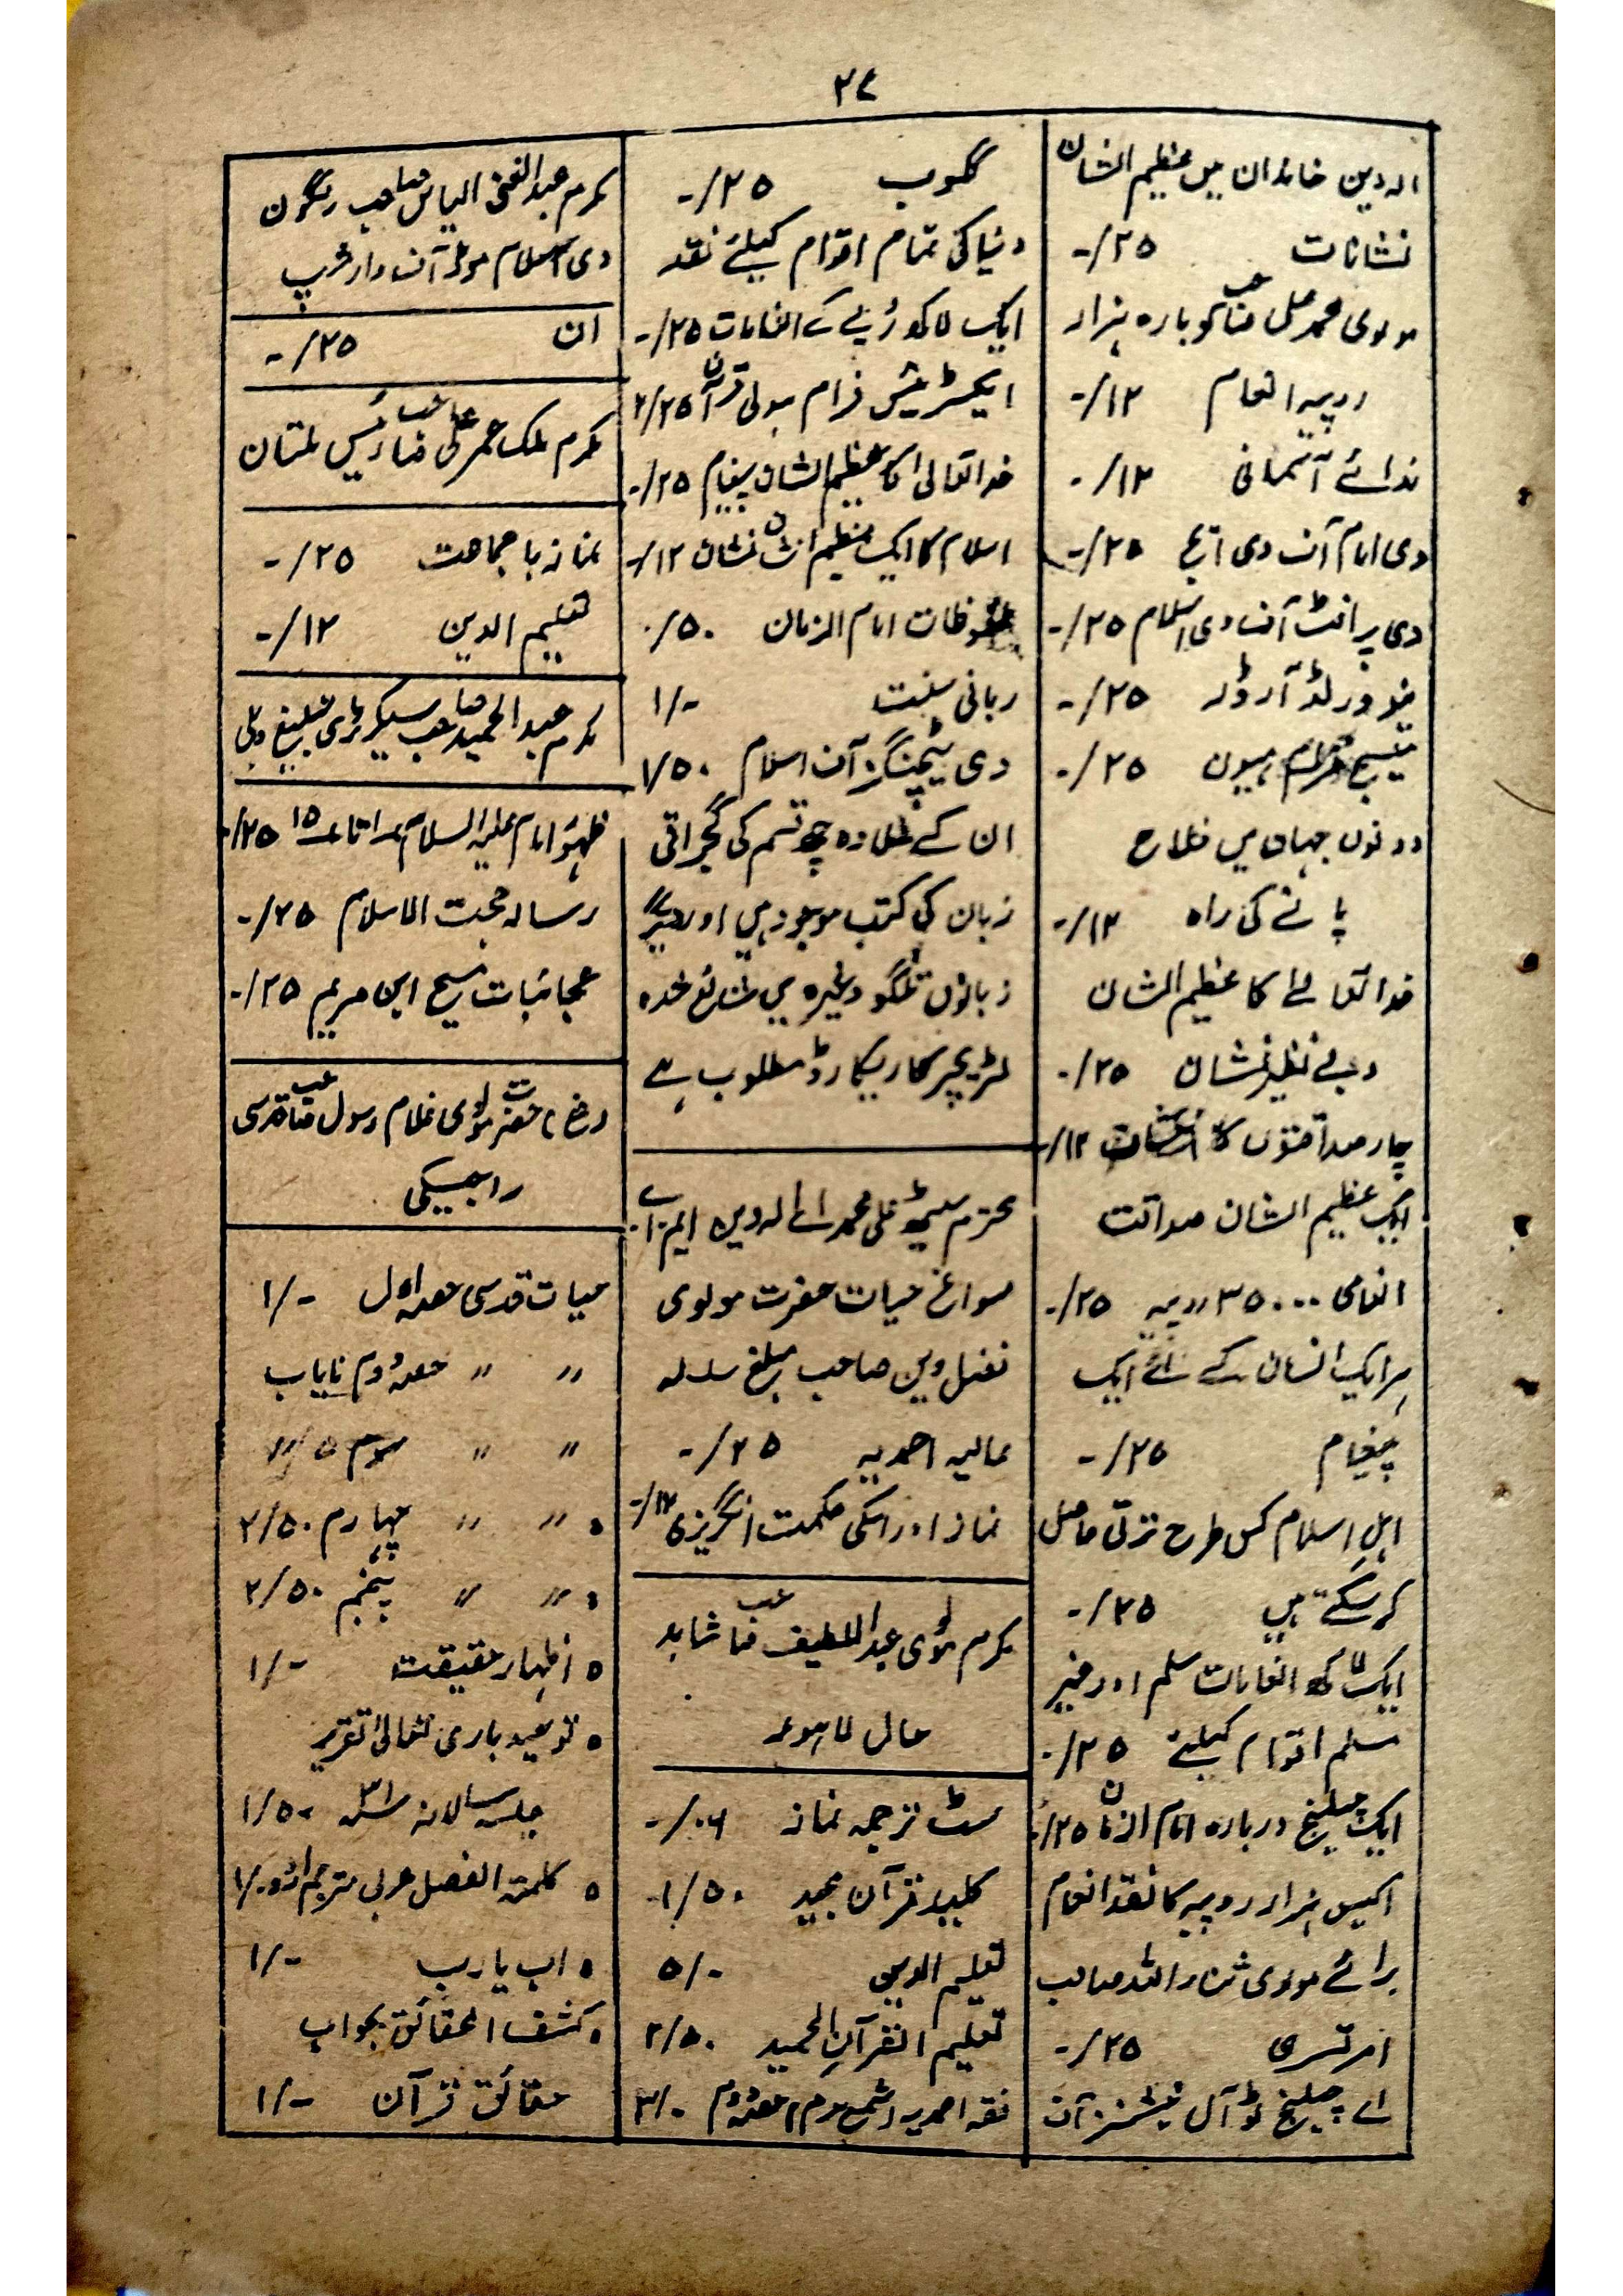 ۲۴
الہ دین خاندان میں عظیم الشان
نشانات ۲۵/-
مولوی محمد علی صاحب کو بارہ ہزار
روپیہ انعام ۱۲/-
ندائے آسمانی ۱۲/-
دی امام آف دی ایج ۲۵/-
دی پرافٹ آف دی اسلام ۲۵/-
نیو ورلڈ آرڈر ۲۵/-
مسیح فرام ہیون ۲۵/-
دونوں جہاں میں فلاح
پانے کی راہ ۱۲/-
خدا تعالےٰ کا عظیم الشان
و بے نظیر نشان ۲۵/-
چار صداقتوں کا ۱۲/-
ایک عظیم الشان صداقت
انعامی ۳۵۰۰۰ روپیہ ۲۵/-
ہر ایک انسان کے لئے ایک
پیغام ۲۵/-
اہل اسلام کس طرح ترقی حاصل
کر سکتے ہیں ۲۵/-
ایک لاکھ انعامات مسلم اور غیر
مسلم اقوام کیلئے ۲۵/-
ایک چیلنج دربارہ امام الزمان ۲۵/-
اکیس ہزار روپیہ کا نقد انعام
برائے مولوی ثناء اللہ صاحب
امرتسری ۲۵/-
اے چیلنج ٹو آل نیشنز آف
گلوب ۲۵/-
دنیا کی تمام اقوام کیلئے نقد
ایک لاکھ روپے کے انعامات ۲۵/-
ایکسٹریکٹس فرام ہولی قرآن ۲/۲۵
خدا تعالیٰ کا عظیم الشان پیغام ۲۵/-
اسلام کا ایک عظیم الشان نشان ۱۲/-
ملفوظات امام الزمان ۵۰/۰
ربانی سنت ۱/-
دی ٹیچنگز آف اسلام ۱/۵۰
ان کے علاوہ چھ قسم کی گجراتی
زبان کی کتب موجود ہیں اور دیگر
زبانوں تلگو وغیرہ میں شائع شدہ
لٹریچر کا ریکارڈ مطلوب ہے
محترم سیٹھ علی محمد اے الہ دین ایم۔اے
سوانح حیات حضرت مولوی
فضل دین صاحب مبلغ سلسلہ
عالیہ احمدیہ ۲۵/-
نماز اور اسکی حکمت انگریزی ۱۲/-
مکرم مولوی عبداللطیف صاحب شاہد
حال لاہور
سٹ ترجمہ نماز ۰۶/-
کلید قرآن مجید ۱/۵۰
تعلیم العربی ۵/-
تعلیم القرآن الحمید ۲/۵۰
فقہ احمدیہ حصہ دوم ۳/۰
مکرم عبدالغنی الیاس صاحب رنگون
دی اسلام موڈ آف وارشپ
ان ۲۵/-
مکرم ملک عمر علی صاحب رئیس ملتان
نماز باجماعت ۲۵/-
تعلیم الدین ۱۲/-
مکرم عبدالحمید صاحب سیکرٹری تبلیغ دہلی
ظہور امام علیہ السلام ۱ تا ۱۵ ۲۵/-
رسالہ حجت الاسلام ۲۵/-
عجائبات مسیح ابن مریم ۲۵/-
حضرت مولوی غلام رسول صاحب قدسی
راجیکی
حیات قدسی حصہ اول ۱/-
〃 〃 حصہ دوم نایاب
〃 〃 سوم
〃 〃 چہارم ۲/۵۰
〃 〃 پنجم ۲/۵۰
o اظہار حقیقت ۱/-
o توحید باری تعالیٰ تقریر
جلسہ سالانہ ۱/۵۰
o کلمۃ الفصل عربی مترجم اردو ۱/۰
o اب یارب ۱/-
o کشف الحقائق بجواب
حقائق قرآن ۱/-